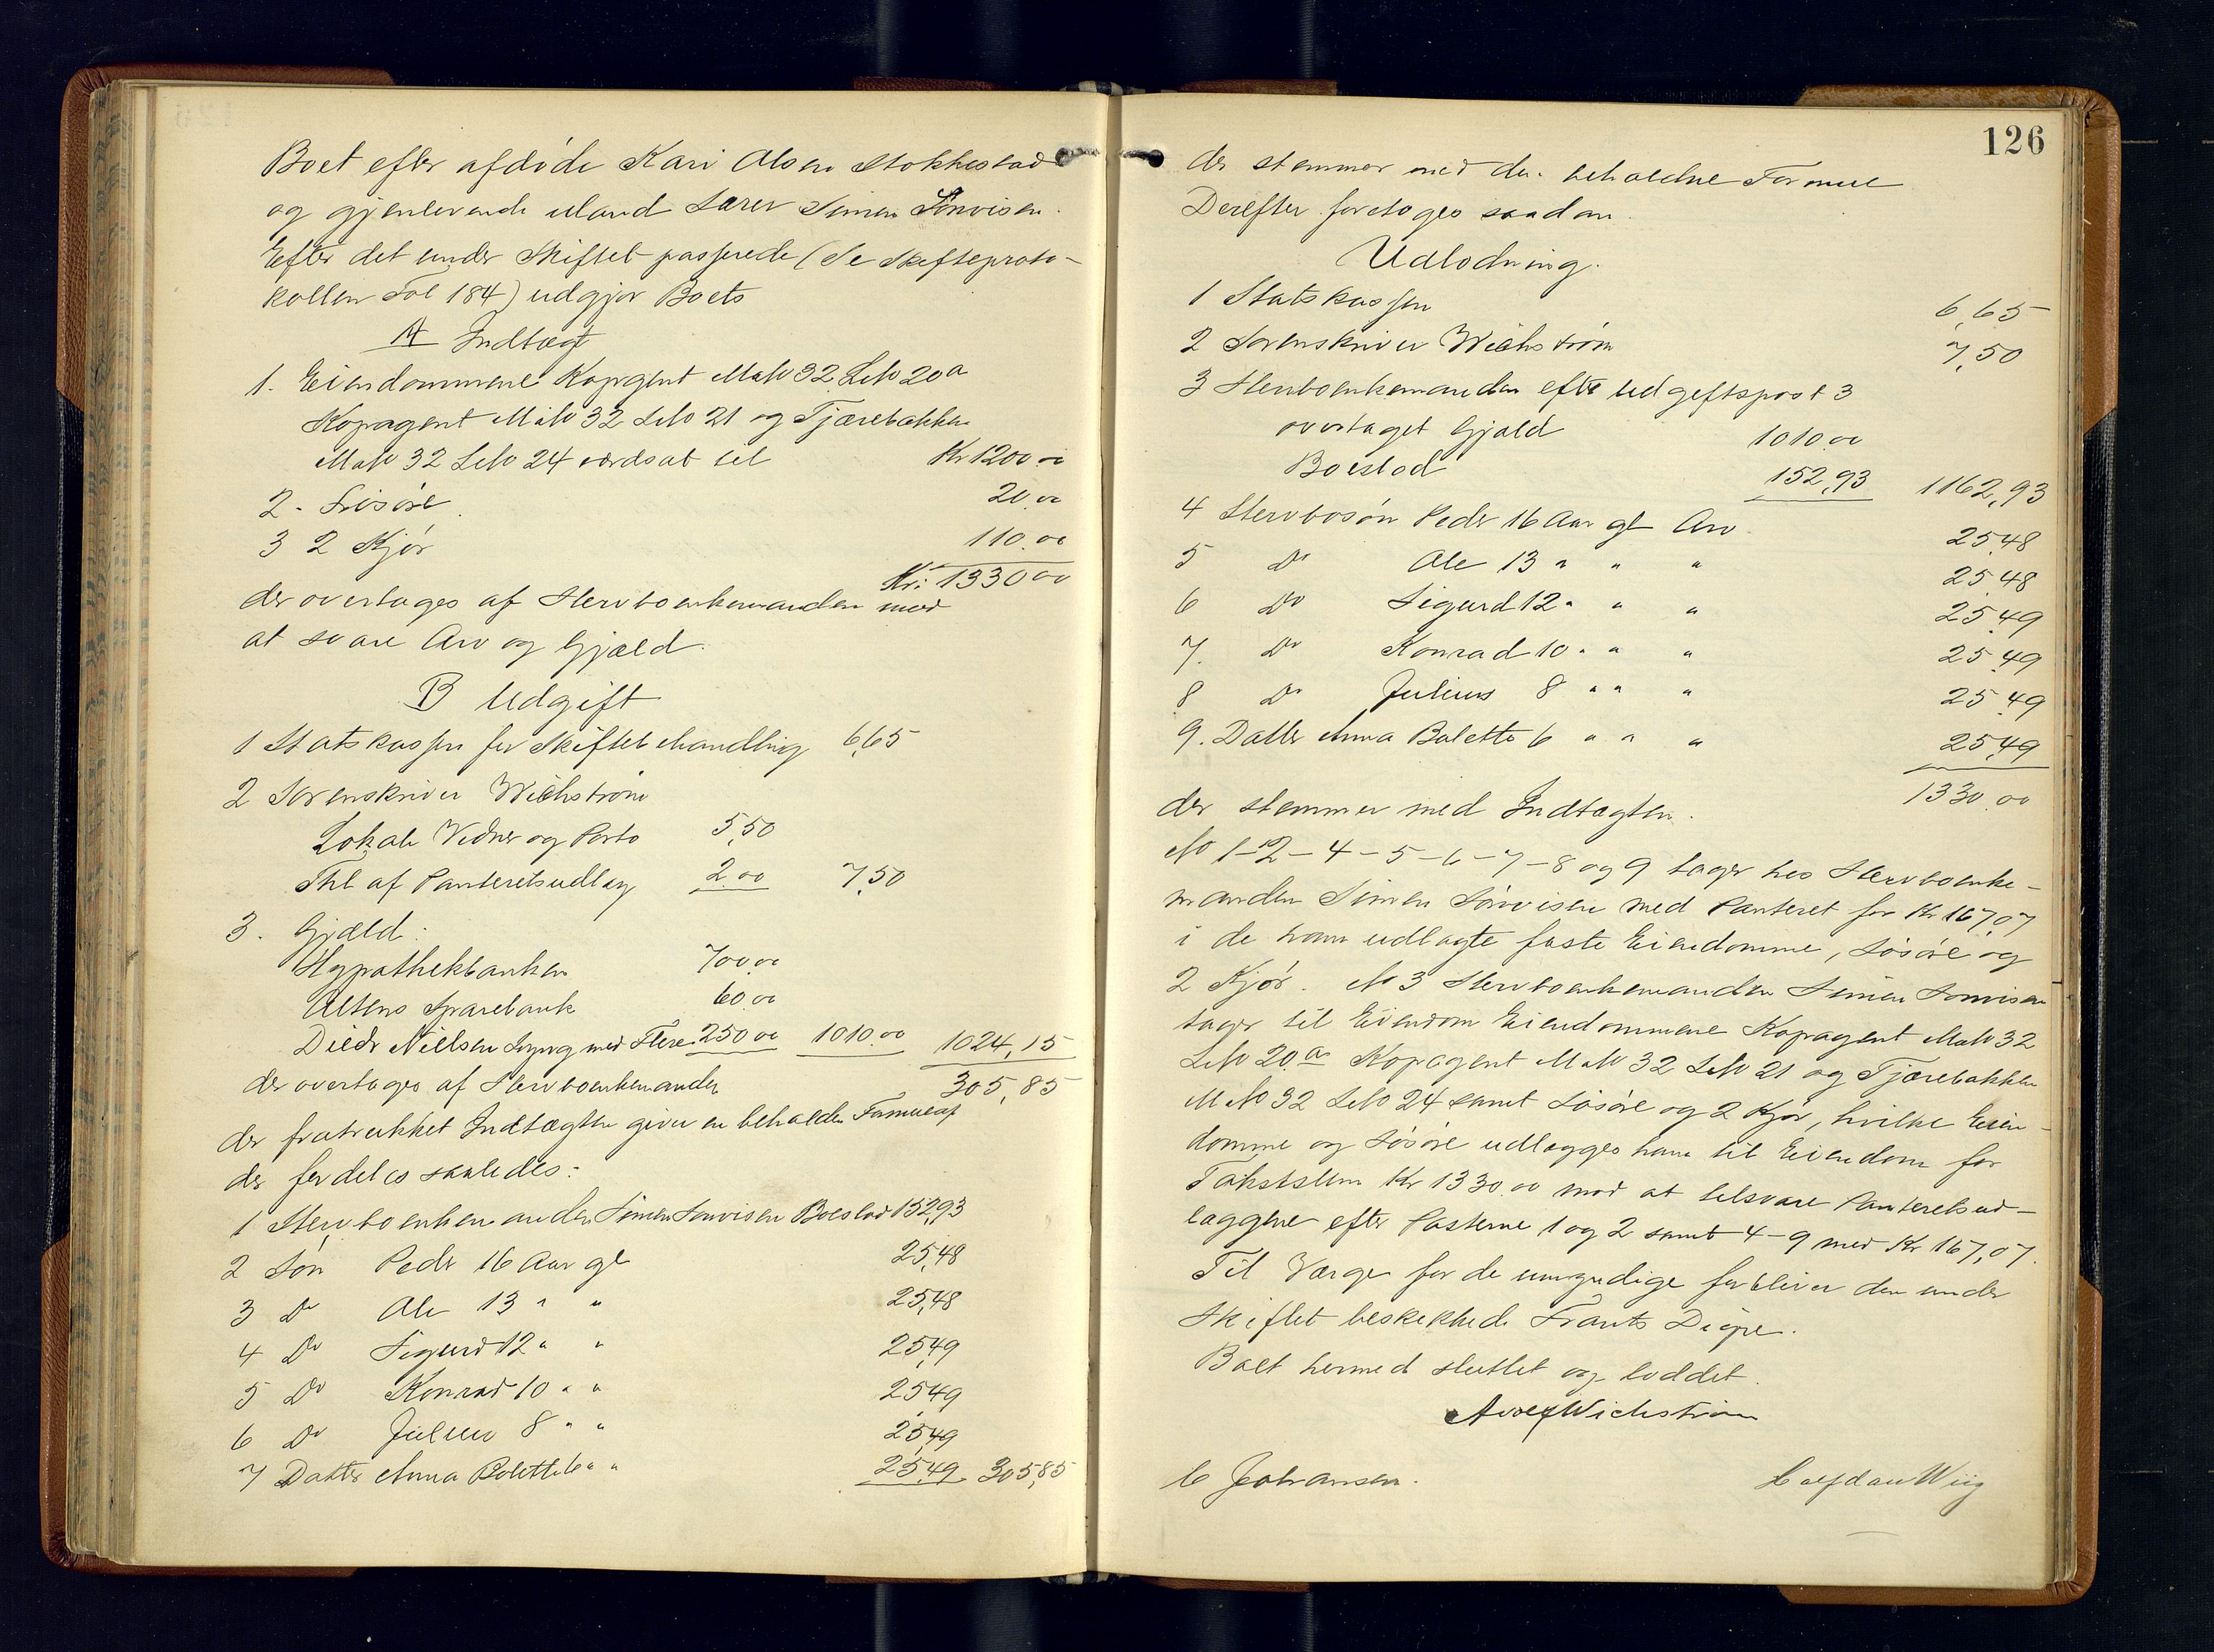 Boet efter afdøde Kari Olsen Stokkestad
og gjenlevende Mand Lærer Simen Sønvisen.
Efter det under Skiftet passerede (Se Skifteproto-
kollen Fol 184) udgjør Boets
A Indtægt
1. Eiendommene Kopagent MaNo 32 LNo 20a
Kopagent MaNo 32 LNo 21 og Tjærebakken
MaNo 32 LNo 24 værdsat til Kr 1200.00
2. Løsøre 20.00
3 2 Kjør 110.00
Kr: 1330.00
der overtages af Stervboenkemanden mod
at svare Arv og Gjæld.
B Udgift
1 Statskassen for Skiftebehandling 6,65
2 Sorenskriver Wichstrøm
Lokale Vidner og Porto 5,50
Thl af Panteretsudlæg 2.00 7,50
3. Gjæld:
Hypothekbanken 700.00
Altens Sparebank 60.00
Didr Nielsen Lyng med Flere 250.00 1010.00 1024,15
der overtages af Stervboenkemanden 305,85
der fratrukket Indtægten giver en beholden Formue af
der fordeles saaledes:
1 Stervboenkemanden Simen Sønvisen Boeslod 152,93
2 Søn Peder 16 Aar gl 25,48
3 Do Ole 13 " " 25,48
4 Do Sigurd 12 " " 25,49
5 Do Konrad 10 " " 25,49
6 Do Julius 8 " " 25,49
7 Datter Anna Bolette 6 " " 25,49 305,85
126
der stemmer med den beholdne Formue
Derefter foretoges saadan
Udlodning.
1 Statskassen 6,65
2 Sorenskriver Wichstrøm 7,50
3 Stervboenkemanden efter Udgiftspost 3
overtaget Gjæld 1010.00
Boeslod 152,93 1162,93
4 Stervbosøn Peder 16 Aar gl Arv 25,48
5 Do Ole 13 " " " 25,48
6 Do Sigurd 12 " " " 25,49
7. Do Konrad 10 " " " 25,49
8 Do Julius 8 " " " 25,49
9. Datter Anna Bolette 6 " " " 25,49
1330.00
der stemmer med Indtægten.
No 1-2-4-5-6-7-8 og 9 tager hos Stervboenke-
manden Simen Sønvisen med Panteret for Kr 167,07
i de ham udlagte faste Eiendomme, Løsøre og
2 Kjør. No 3 Stervboenkemanden Simen Sønvisen
tager til Eiendom Eiendommene Kopagent MaNo 32
LNo 20a Kopagent MaNo 32 LNo 21 og Tjærebakken
MNo 32 LNo 24 samt Løsøre og 2 Kjør, hvilke Eien-
domme og Løsøre udlægges ham til Eiendom for
Takstslum Kr 1330.00 mod at tilsvare Panteretsud-
læggene efter Posterne 1 og 2 samt 4-9 med Kr 167,07.
Til Værge for de umyndige forbliver den under
Skiftet beskikkede Frants Digre.
Boet hermed sluttet og loddet.
Adolf Wichstrøm
C Johansen. Halfdan Wiig